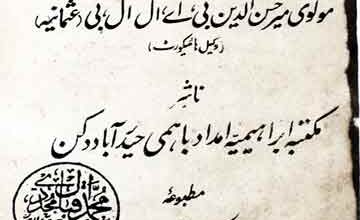 مولوی میر حسن الدین بی، اے، ال ال، بی (عثمانیہ)
(وکیل ہائیکورٹ)
ناشر
مکتبہ ابراہیمیہ امداد باہمی حیدرآباد دکن
مطبوعہ
محمد اقبال مجددی